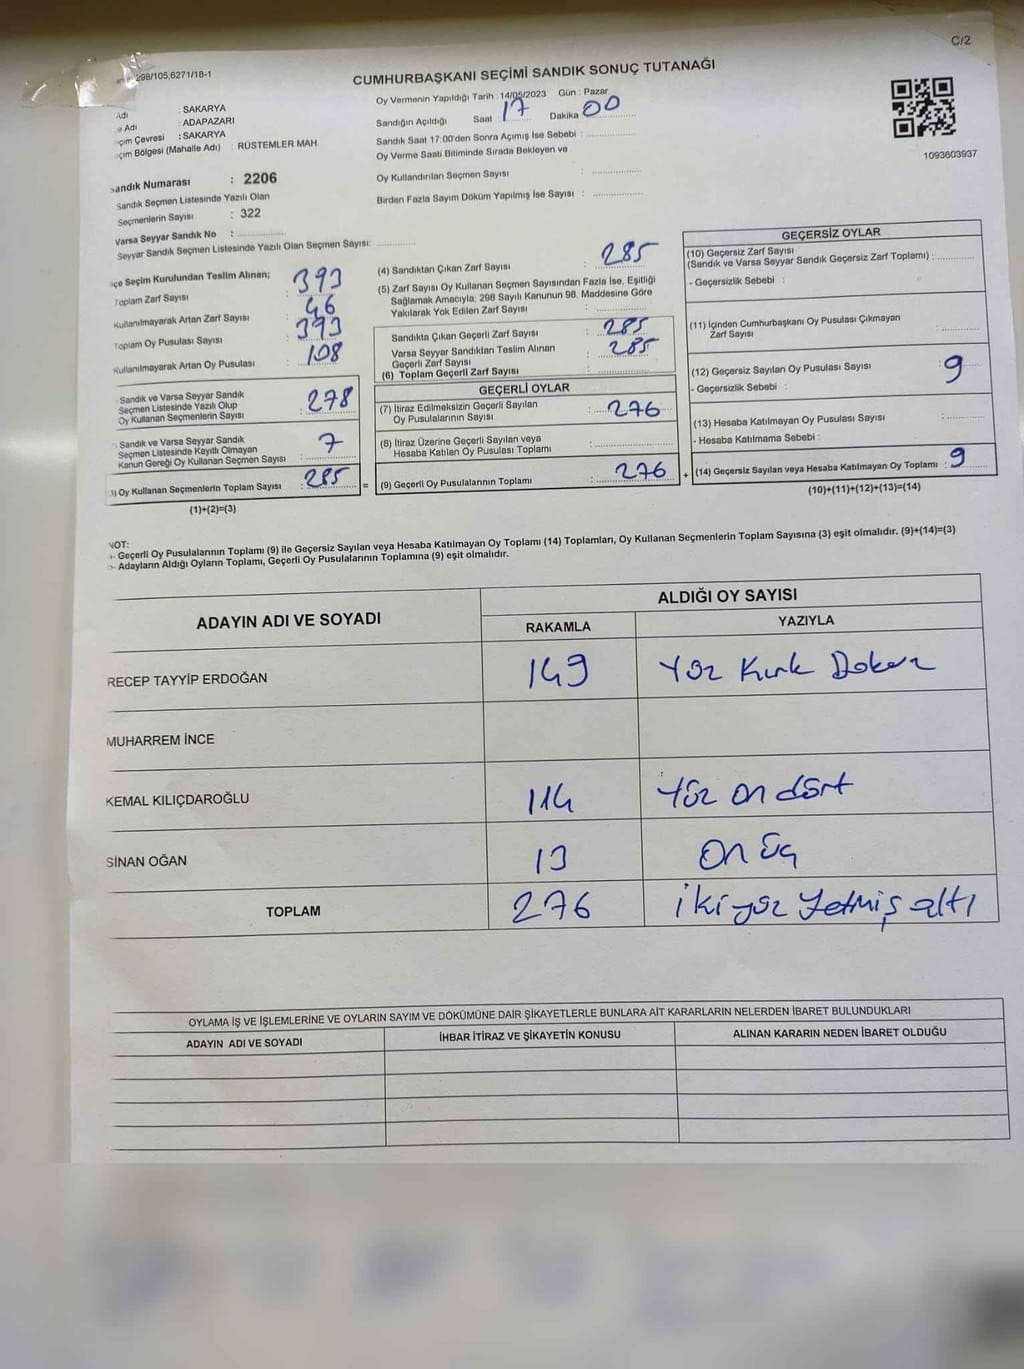 C/2
298/105,6271/18-1
CUMHURBAŞKANI SEÇİMİ SANDIK SONUÇ TUTANAĞI
Adı : SAKARYA
e Adı : ADAPAZARI
çim Çevresi : SAKARYA
çim Bölgesi (Mahalle Adı) : RÜSTEMLER MAH.
Sandık Numarası : 2206
Sandık Seçmen Listesinde Yazılı Olan
Seçmenlerin Sayısı : 322
Varsa Seyyar Sandık No :
Seyyar Sandık Seçmen Listesinde Yazılı Olan Seçmen Sayısı:
Oy Vermenin Yapıldığı Tarih : 14/05/2023 Gün : Pazar
Sandığın Açıldığı Saat : 17 Dakika 00
Sandık Saat 17:00'den Sonra Açımış İse Sebebi :
Oy Verme Saati Bitiminde Sırada Bekleyen ve
Oy Kullandırılan Seçmen Sayısı :
Birden Fazla Sayım Döküm Yapılmış İse Sayısı :
1093603937
çe Seçim Kurulundan Teslim Alınan;
Toplam Zarf Sayısı : 393
Kullanılmayarak Artan Zarf Sayısı : 46
Toplam Oy Pusulası Sayısı : 393
Kullanılmayarak Artan Oy Pusulası : 108
Sandık ve Varsa Seyyar Sandık
Seçmen Listesinde Yazılı Olup
Oy Kullanan Seçmenlerin Sayısı : 278
Sandık ve Varsa Seyyar Sandık
Seçmen Listesinde Kayıtlı Olmayan
Kanun Gereği Oy Kullanan Seçmen Sayısı : 7
) Oy Kullanan Seçmenlerin Toplam Sayısı : 285 =
(1)+(2)=(3)
(4) Sandıktan Çıkan Zarf Sayısı : 285
(5) Zarf Sayısı Oy Kullanan Seçmen Sayısından Fazla İse, Eşitliği
Sağlamak Amacıyla, 298 Sayılı Kanunun 98. Maddesine Göre
Yakılarak Yok Edilen Zarf Sayısı :
Sandıkta Çıkan Geçerli Zarf Sayısı : 285
Varsa Seyyar Sandıktan Teslim Alınan
Geçerli Zarf Sayısı : 285
(6) Toplam Geçerli Zarf Sayısı :
GEÇERLİ OYLAR
(7) İtiraz Edilmeksizin Geçerli Sayılan
Oy Pusulalarının Sayısı : 276
(8) İtiraz Üzerine Geçerli Sayılan veya
Hesaba Katılan Oy Pusulası Toplamı :
(9) Geçerli Oy Pusulalarının Toplamı : 276 +
GEÇERSİZ OYLAR
(10) Geçersiz Zarf Sayısı
(Sandık ve Varsa Seyyar Sandık Geçersiz Zarf Toplamı) :
- Geçersizlik Sebebi :
(11) İçinden Cumhurbaşkanı Oy Pusulası Çıkmayan
Zarf Sayısı :
(12) Geçersiz Sayılan Oy Pusulası Sayısı : 9
- Geçersizlik Sebebi :
(13) Hesaba Katılmayan Oy Pusulası Sayısı :
- Hesaba Katılmama Sebebi :
(14) Geçersiz Sayılan veya Hesaba Katılmayan Oy Toplamı : 9
(10)+(11)+(12)+(13)=(14)
NOT:
- Geçerli Oy Pusulalarının Toplamı (9) ile Geçersiz Sayılan veya Hesaba Katılmayan Oy Toplamı (14) Toplamları, Oy Kullanan Seçmenlerin Toplam Sayısına (3) eşit olmalıdır. (9)+(14)=(3)
- Adayların Aldığı Oyların Toplamı, Geçerli Oy Pusulalarının Toplamına (9) eşit olmalıdır.
ADAYIN ADI VE SOYADI ALDIĞI OY SAYISI
RAKAMLA YAZIYLA
RECEP TAYYİP ERDOĞAN 149 Yüz Kırk Dokuz
MUHARREM İNCE
KEMAL KILIÇDAROĞLU 114 Yüz on dört
SİNAN OĞAN 13 On üç
TOPLAM 276 İkiyüz Yetmiş altı
OYLAMA İŞ VE İŞLEMLERİNE VE OYLARIN SAYIM VE DÖKÜMÜNE DAİR ŞİKAYETLERLE BUNLARA AİT KARARLARIN NELERDEN İBARET BULUNDUKLARI
ADAYIN ADI VE SOYADI İHBAR İTİRAZ VE ŞİKAYETİN KONUSU ALINAN KARARIN NEDEN İBARET OLDUĞU